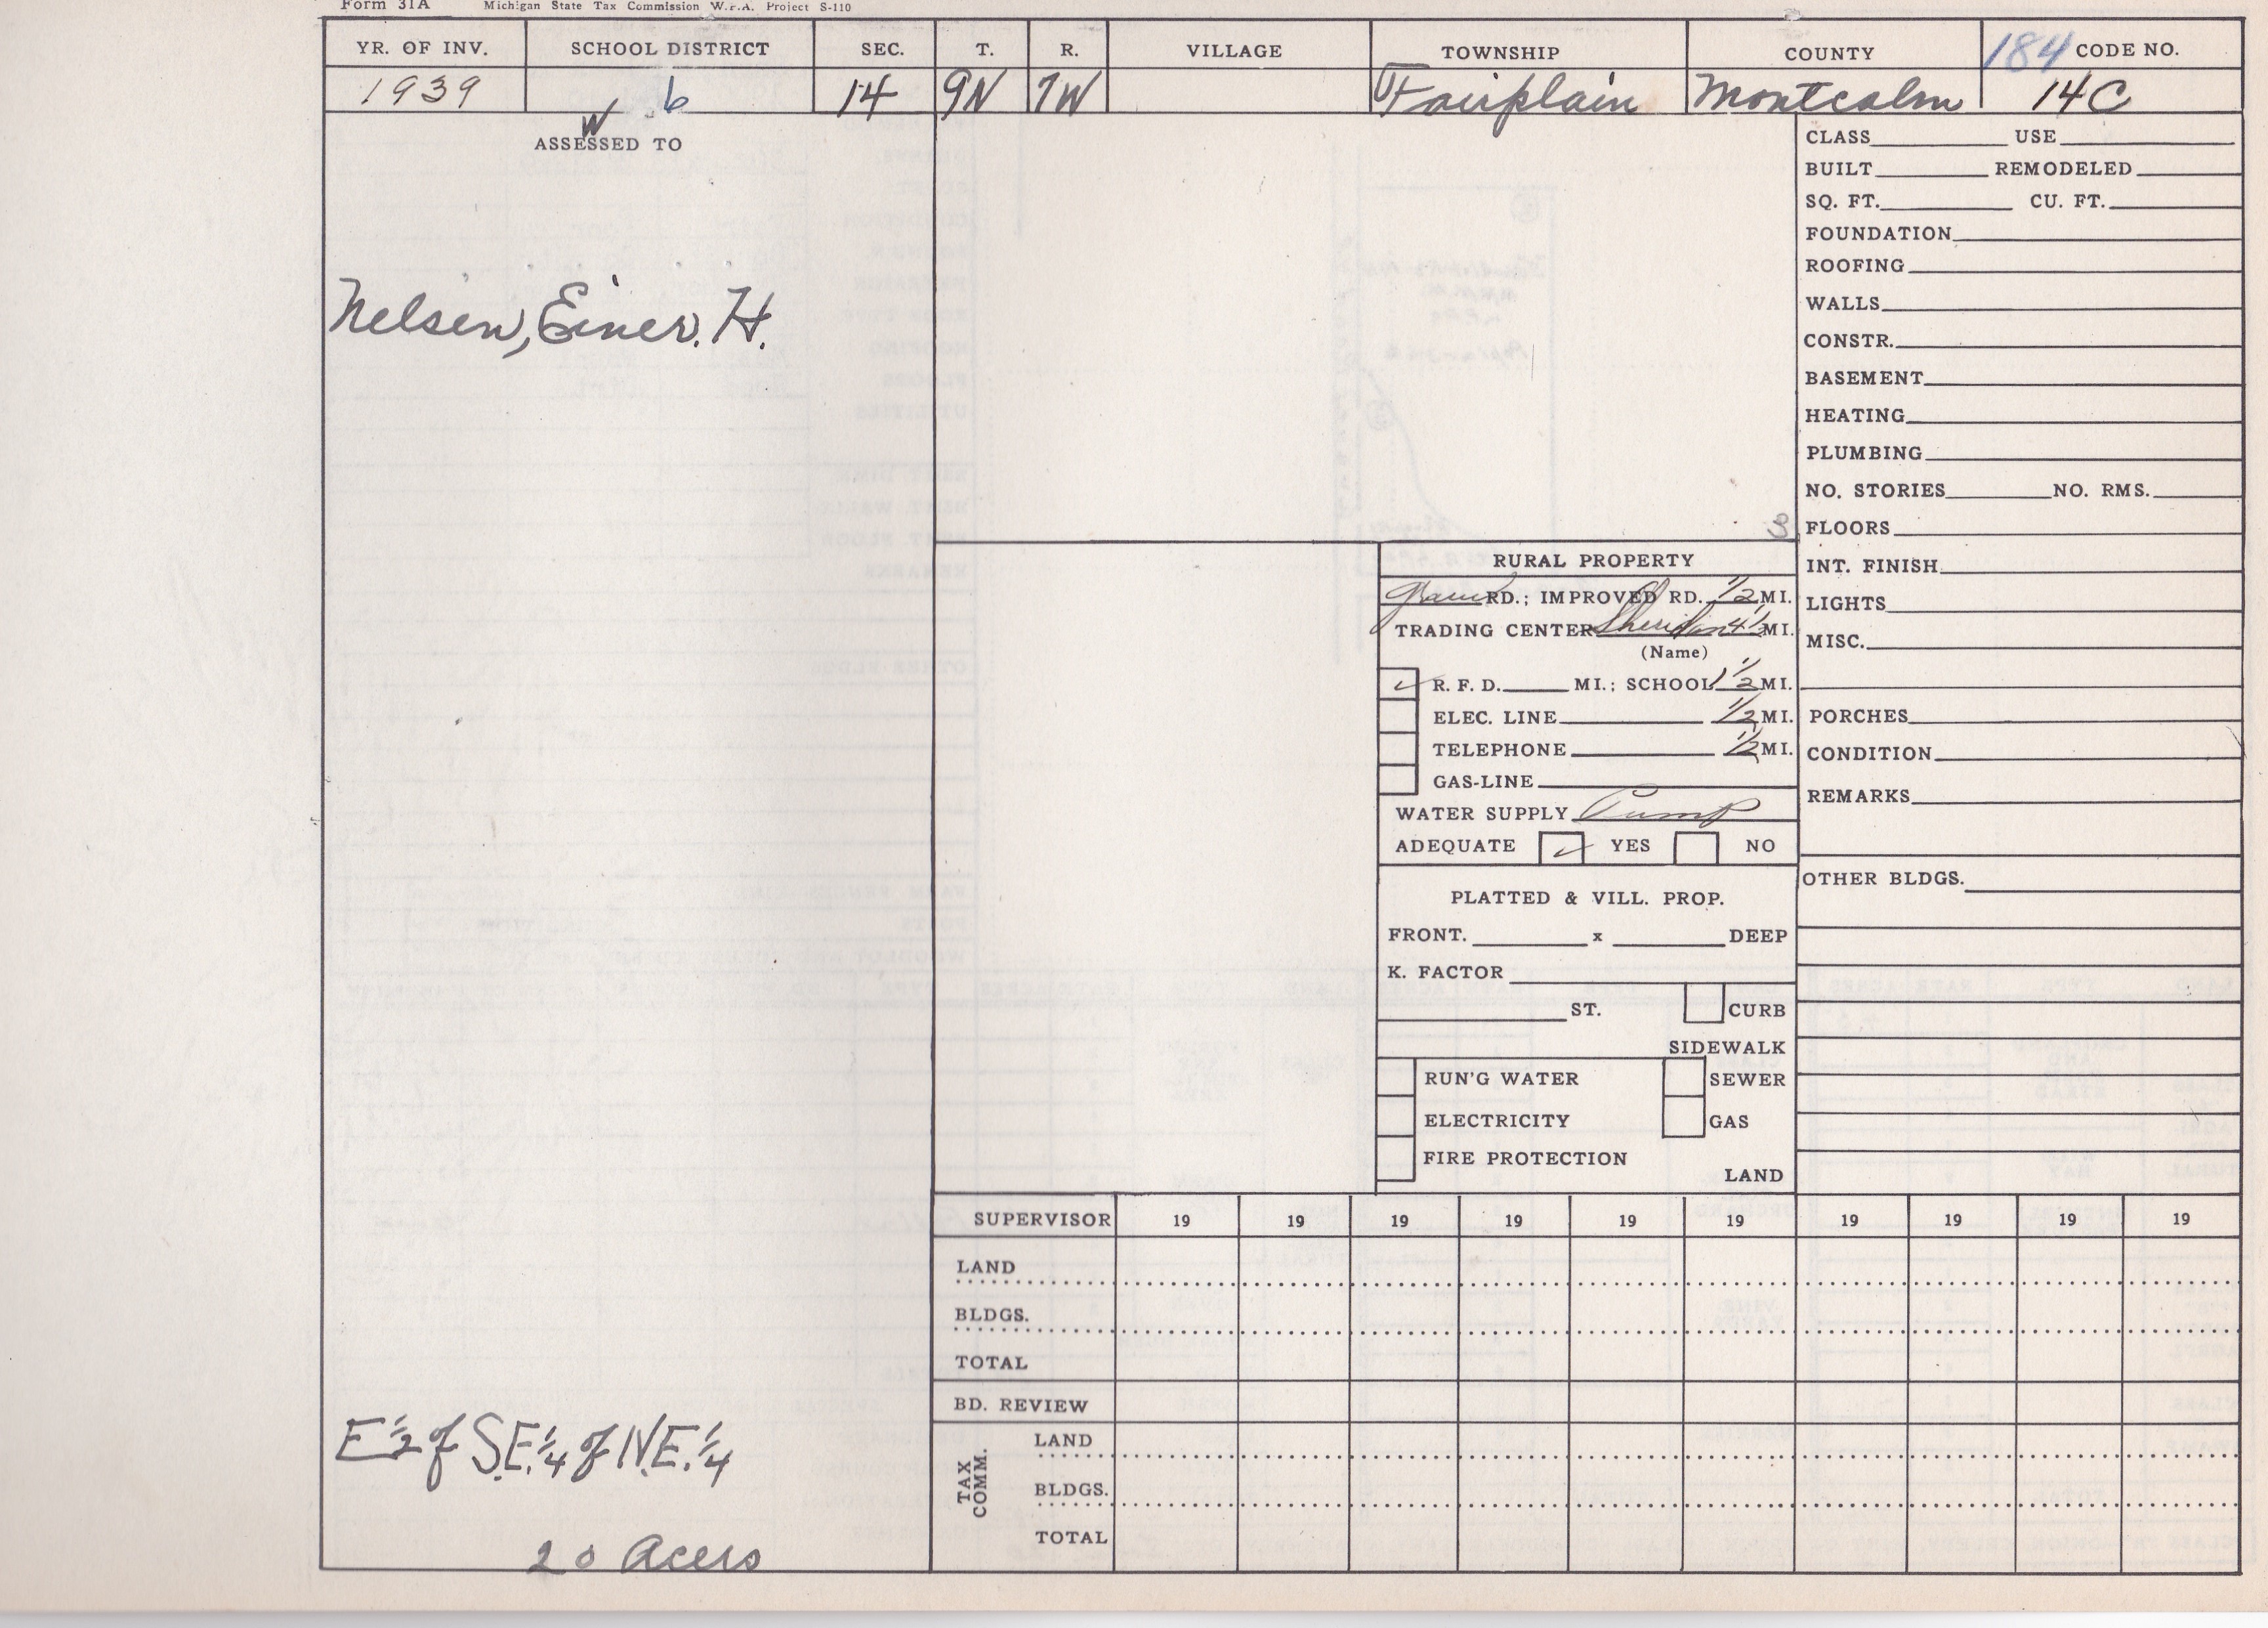 Form 31A Michigan State Tax Commission W.P.A. Project S-110
YR. OF INV. SCHOOL DISTRICT SEC. T. R. VILLAGE TOWNSHIP COUNTY 184 CODE NO.
1939 6 14 9N 7W Fairplain Montcalm 14C
W
ASSESSED TO
Nelsen, Einer. H.
E 1/2 of S.E. 1/4 of N.E. 1/4
20 Acers
3
RURAL PROPERTY
RD.; IMPROVED RD. 1/2 MI.
TRADING CENTER Sheridan 4 1/2 MI.
(Name)
✓ R. F. D. MI.; SCHOOL 1 1/2 MI.
ELEC. LINE 1/2 MI.
TELEPHONE 1/2 MI.
GAS-LINE
WATER SUPPLY Pump
ADEQUATE ✓ YES NO
PLATTED & VILL. PROP.
FRONT. x DEEP
K. FACTOR
ST. CURB
SIDEWALK
RUN'G WATER SEWER
ELECTRICITY GAS
FIRE PROTECTION
LAND
CLASS USE
BUILT REMODELED
SQ. FT. CU. FT.
FOUNDATION
ROOFING
WALLS
CONSTR.
BASEMENT
HEATING
PLUMBING
NO. STORIES NO. RMS.
FLOORS
INT. FINISH
LIGHTS
MISC.
PORCHES
CONDITION
REMARKS
OTHER BLDGS.
SUPERVISOR 19 19 19 19 19 19 19 19 19 19
LAND
BLDGS.
TOTAL
BD. REVIEW
TAX COMM.
LAND
BLDGS.
TOTAL